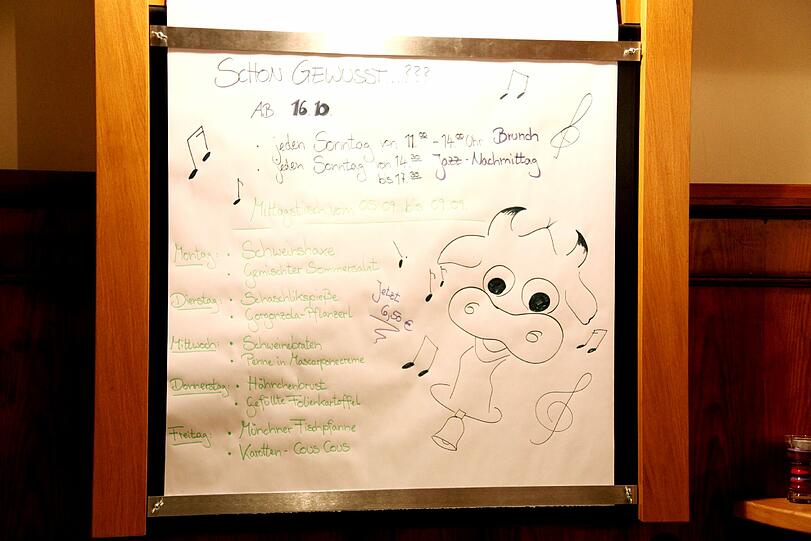 SCHON GEWUSST...???
AB 16.10.
• jeden Sonntag von 11.00 - 14.00 Uhr Brunch
• jeden Sonntag von 14.30 Jazz-Nachmittag
bis 17.30
Mittagstisch vom 05.09. bis 09.09.
Montag: • Schweinshaxe
• Gemischter Sommersalat
Dienstag: • Schaschlikspieße
• Gorgonzola-Pflanzerl
Jetzt
6,50 €
Mittwoch: • Schweinebraten
• Penne in Mascarponecreme
Donnerstag: • Hähnchenbrust
• Gefüllte Folienkartoffel
Freitag: • Münchner Fischpfanne
• Karotten - Cous Cous